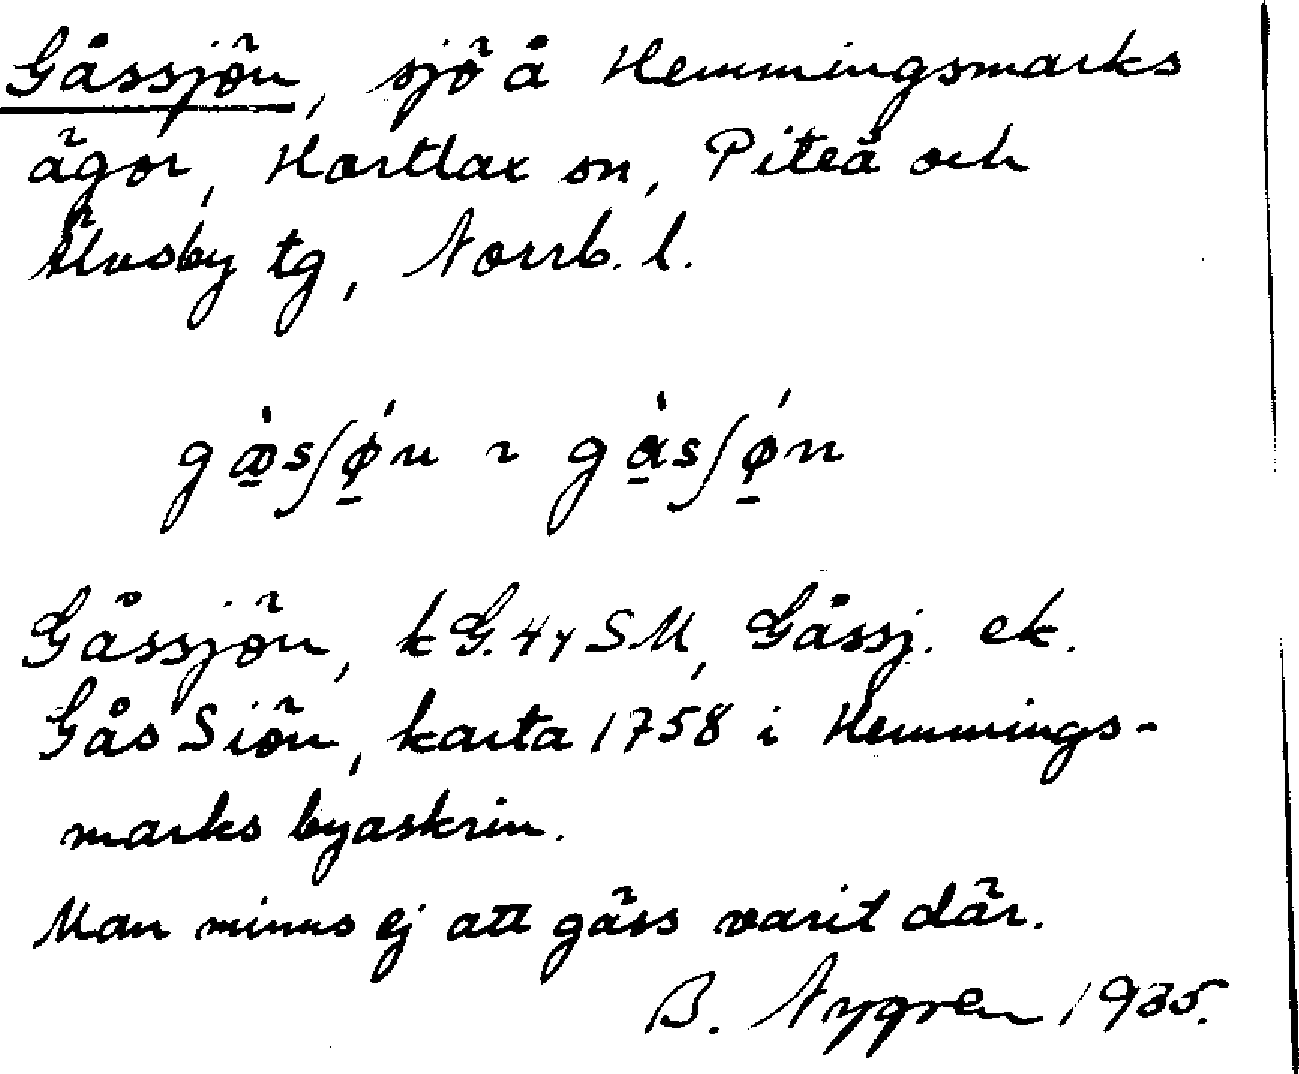 Gåssjön, sjö å Hemmingsmarks
ägor, Hortlax sn, Piteå och
Älvsby tg, Norrb. l.
Gåssjön, kG. 4y SM, Gåssj. ek.
Gås Siön, karta 1758 i Hemmings-
marks byaskrin.
Man minns ej att gäss varit där.
B. Nygren 1935.